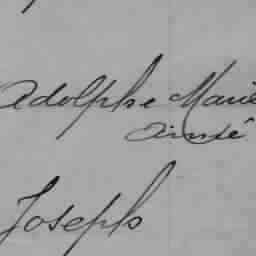 Adolphe Marie
Aimé
Joseph